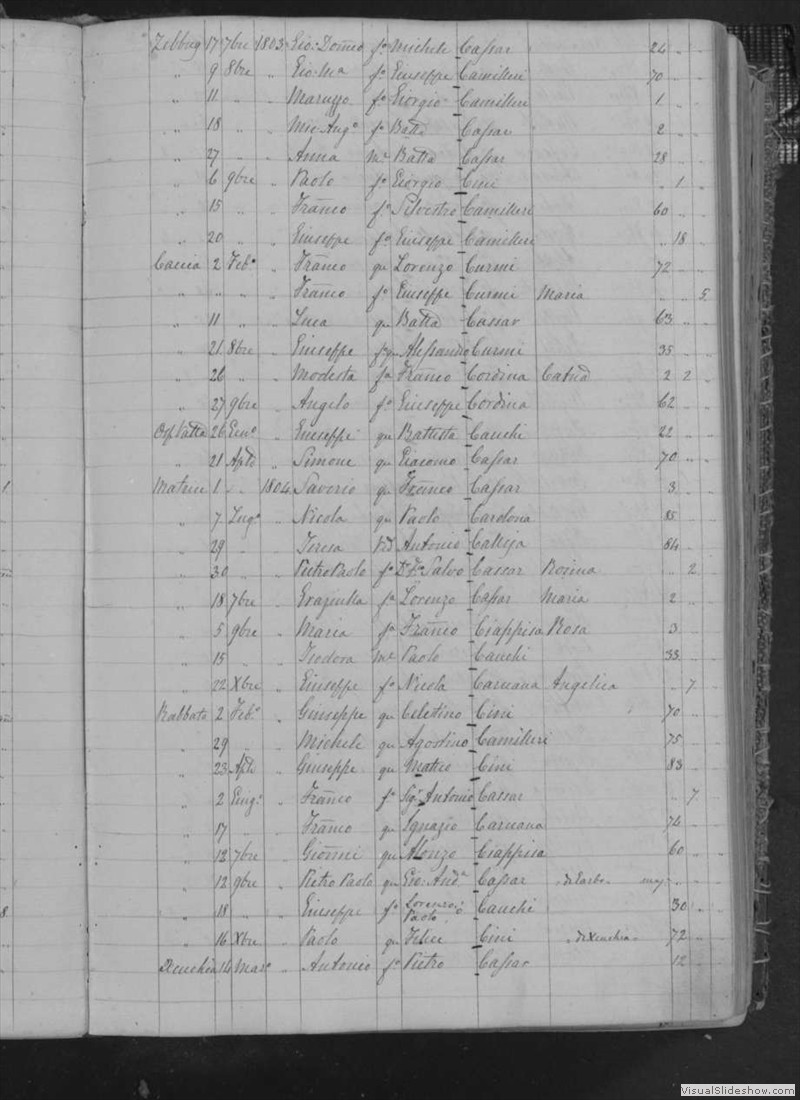 Zebbug 17 7bre 1803 Gio: Domco fo Michele Cassar 24 "
" 9 8bre " Gio: Ma fo Giuseppe Camilleri 70
" 11 " " Maruzzo fo Giorgio Camilleri 1 "
" 18 " " Mic: Ango fo Batta Cassar 2 "
" 27 " " Anna Me Batta Cassar 28 "
" 6 9bre " Paolo fo Giorgio Cini " 1 "
" 15 " " Franco fo Silvestro Camilleri 60 "
" 20 " " Giuseppe fo Giuseppe Camilleri " 18 "
Caccia 2 Febo " Franco qu Lorenzo Curmi 72 "
" " " " Franco fo Giuseppe Curmi Maria " " 5
" 11 " " Luca qu Batta Cassar 63 "
" 21 8bre " Giuseppe fo qu Alessandro Curmi 35 "
" 26 " " Modesta fa Franco Cordina Catna 2 2 "
" 27 9bre " Angelo fo Giuseppe Cordina 62 "
Osp Vatta 26 Geno " Giuseppe qu Battista Cauchi 22 "
" 21 Aple " Simone qu Giacomo Cassar 70 "
Matrice 1 " 1804 Saverio qu Franco Cassar 3 "
" 7 Lugo " Nicola qu Paolo Cardona 85
" 29 " " Teresa Vid Antonio Calleja 84
" 30 " " Pietro Paolo fo Dr Fr Salvo Cassar Rosina " 2
" 18 7bre " Graziulla fa Lorenzo Cassar Maria 2 "
" 5 9bre " Maria fa Franco Crappisa Rosa 3
" 15 " " Teodora Me Paolo Cauchi 33
" 22 Xbre " Giuseppe fo Nicola Caruana Angelica " 7
Rabbato 2 Febo " Giuseppe qu Celestino Cini 70 "
" 29 " " Michele qu Agostino Camilleri 75 "
" 23 Aple " Giuseppe qu Matteo Cini 83
" 2 Giugo " Franco fo Sigr Antonio Cassar " 7
" 17 " " Franco qu Ignazio Caruana 74 "
" 12 7bre " Gionni qu Alonzo Crappisa 60 "
" 12 9bre " Pietro Paolo qu Gio: Anda Cassar
" 18 " " Giuseppe fo Lorenzo: Paolo Cauchi 30
" 16 Xbre " Paolo qu Felice Cini di Xeuchia 72
Xeuchia 14 Maro " Antonio fo Pietro Cassar 12
1
8
VisualSlideshow.com